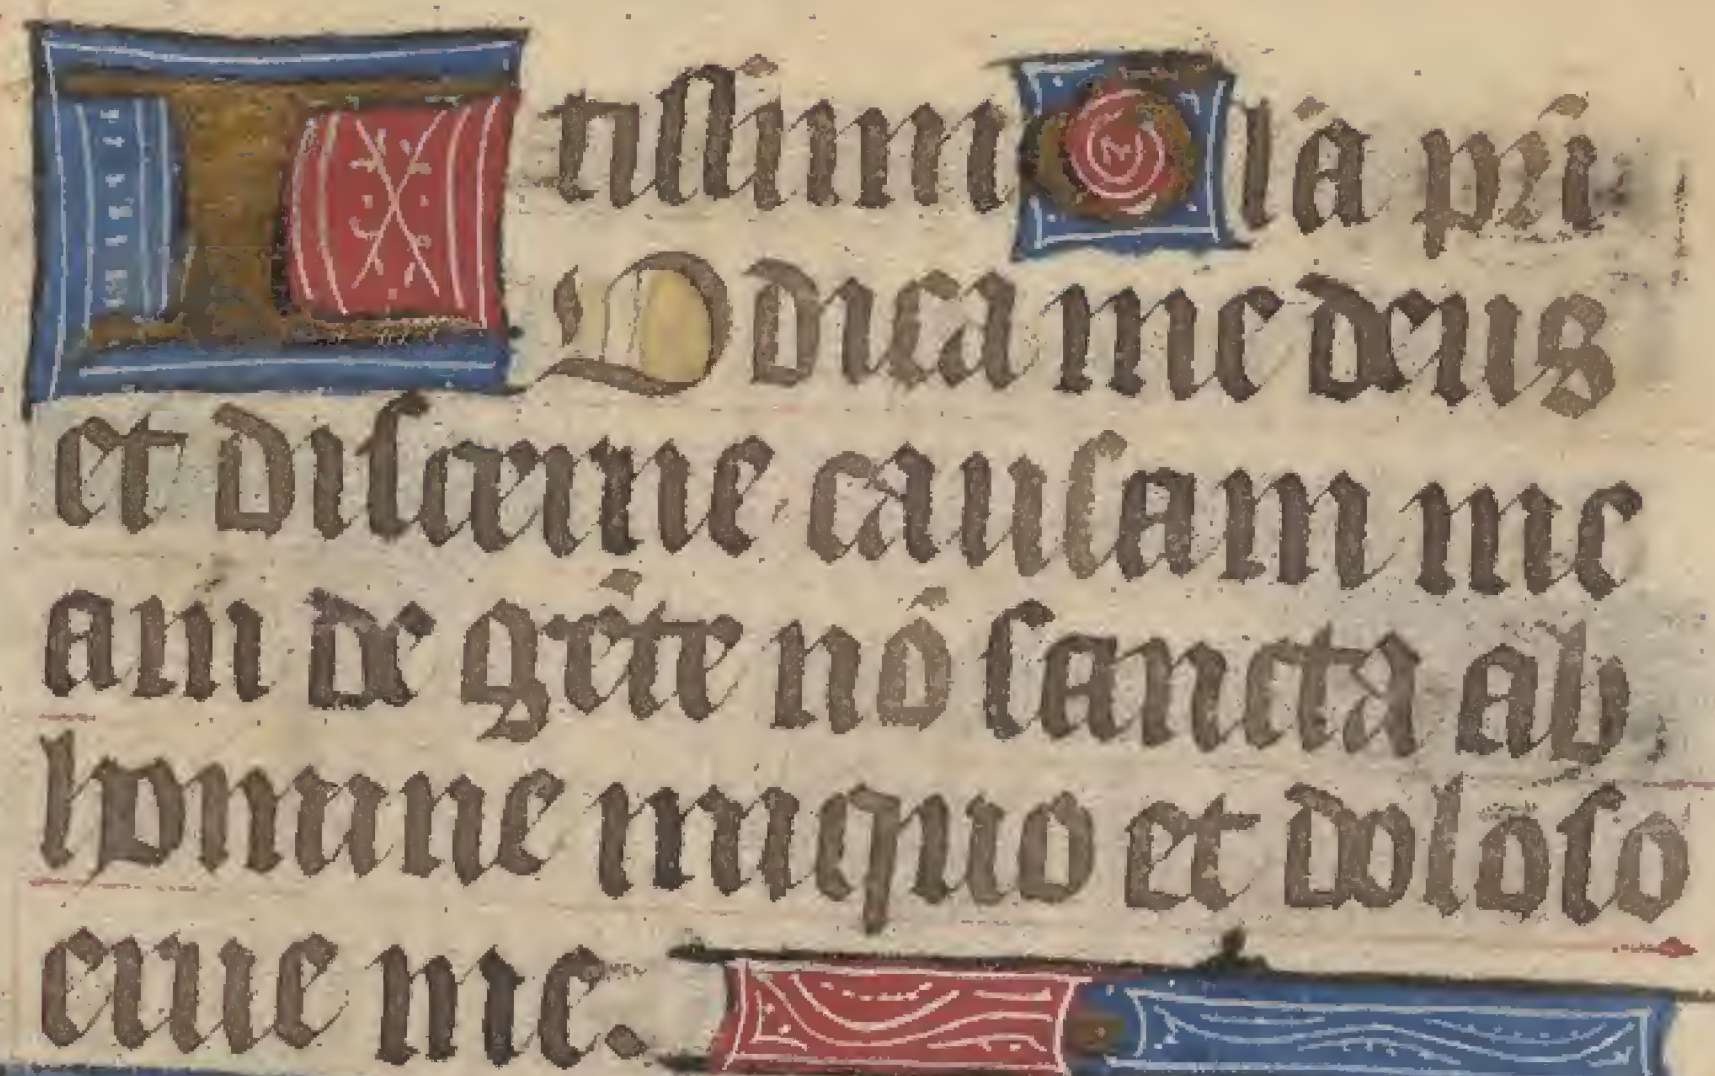 tissimi Gla pri
IUdica me deus
et discerne causam me
am de gẽte nõ sancta ab
homine iniquo et doloso
erue me.